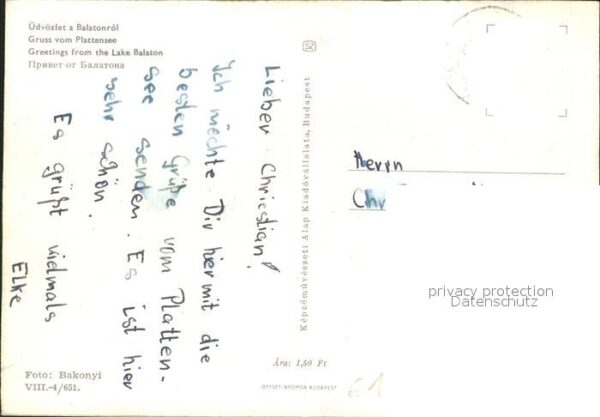 Üdvözlet a Balatonról
Gruss vom Plattensee
Greetings from the Lake Balaton
Привет от Балатона
Lieber Christian!
Ich möchte Dir hiermit die
besten Grüße vom Platten-
see senden. Es ist hier
sehr schön.
Es grüßt vielmals
Elke
Foto: Bakonyi
VIII.-4/651.
Képzőművészeti Alap Kiadóvállalata, Budapest
Ára: 1,50 Ft
OFFSET-NYOMDA BUDAPEST
Herrn
Chr
privacy protection
Datenschutz